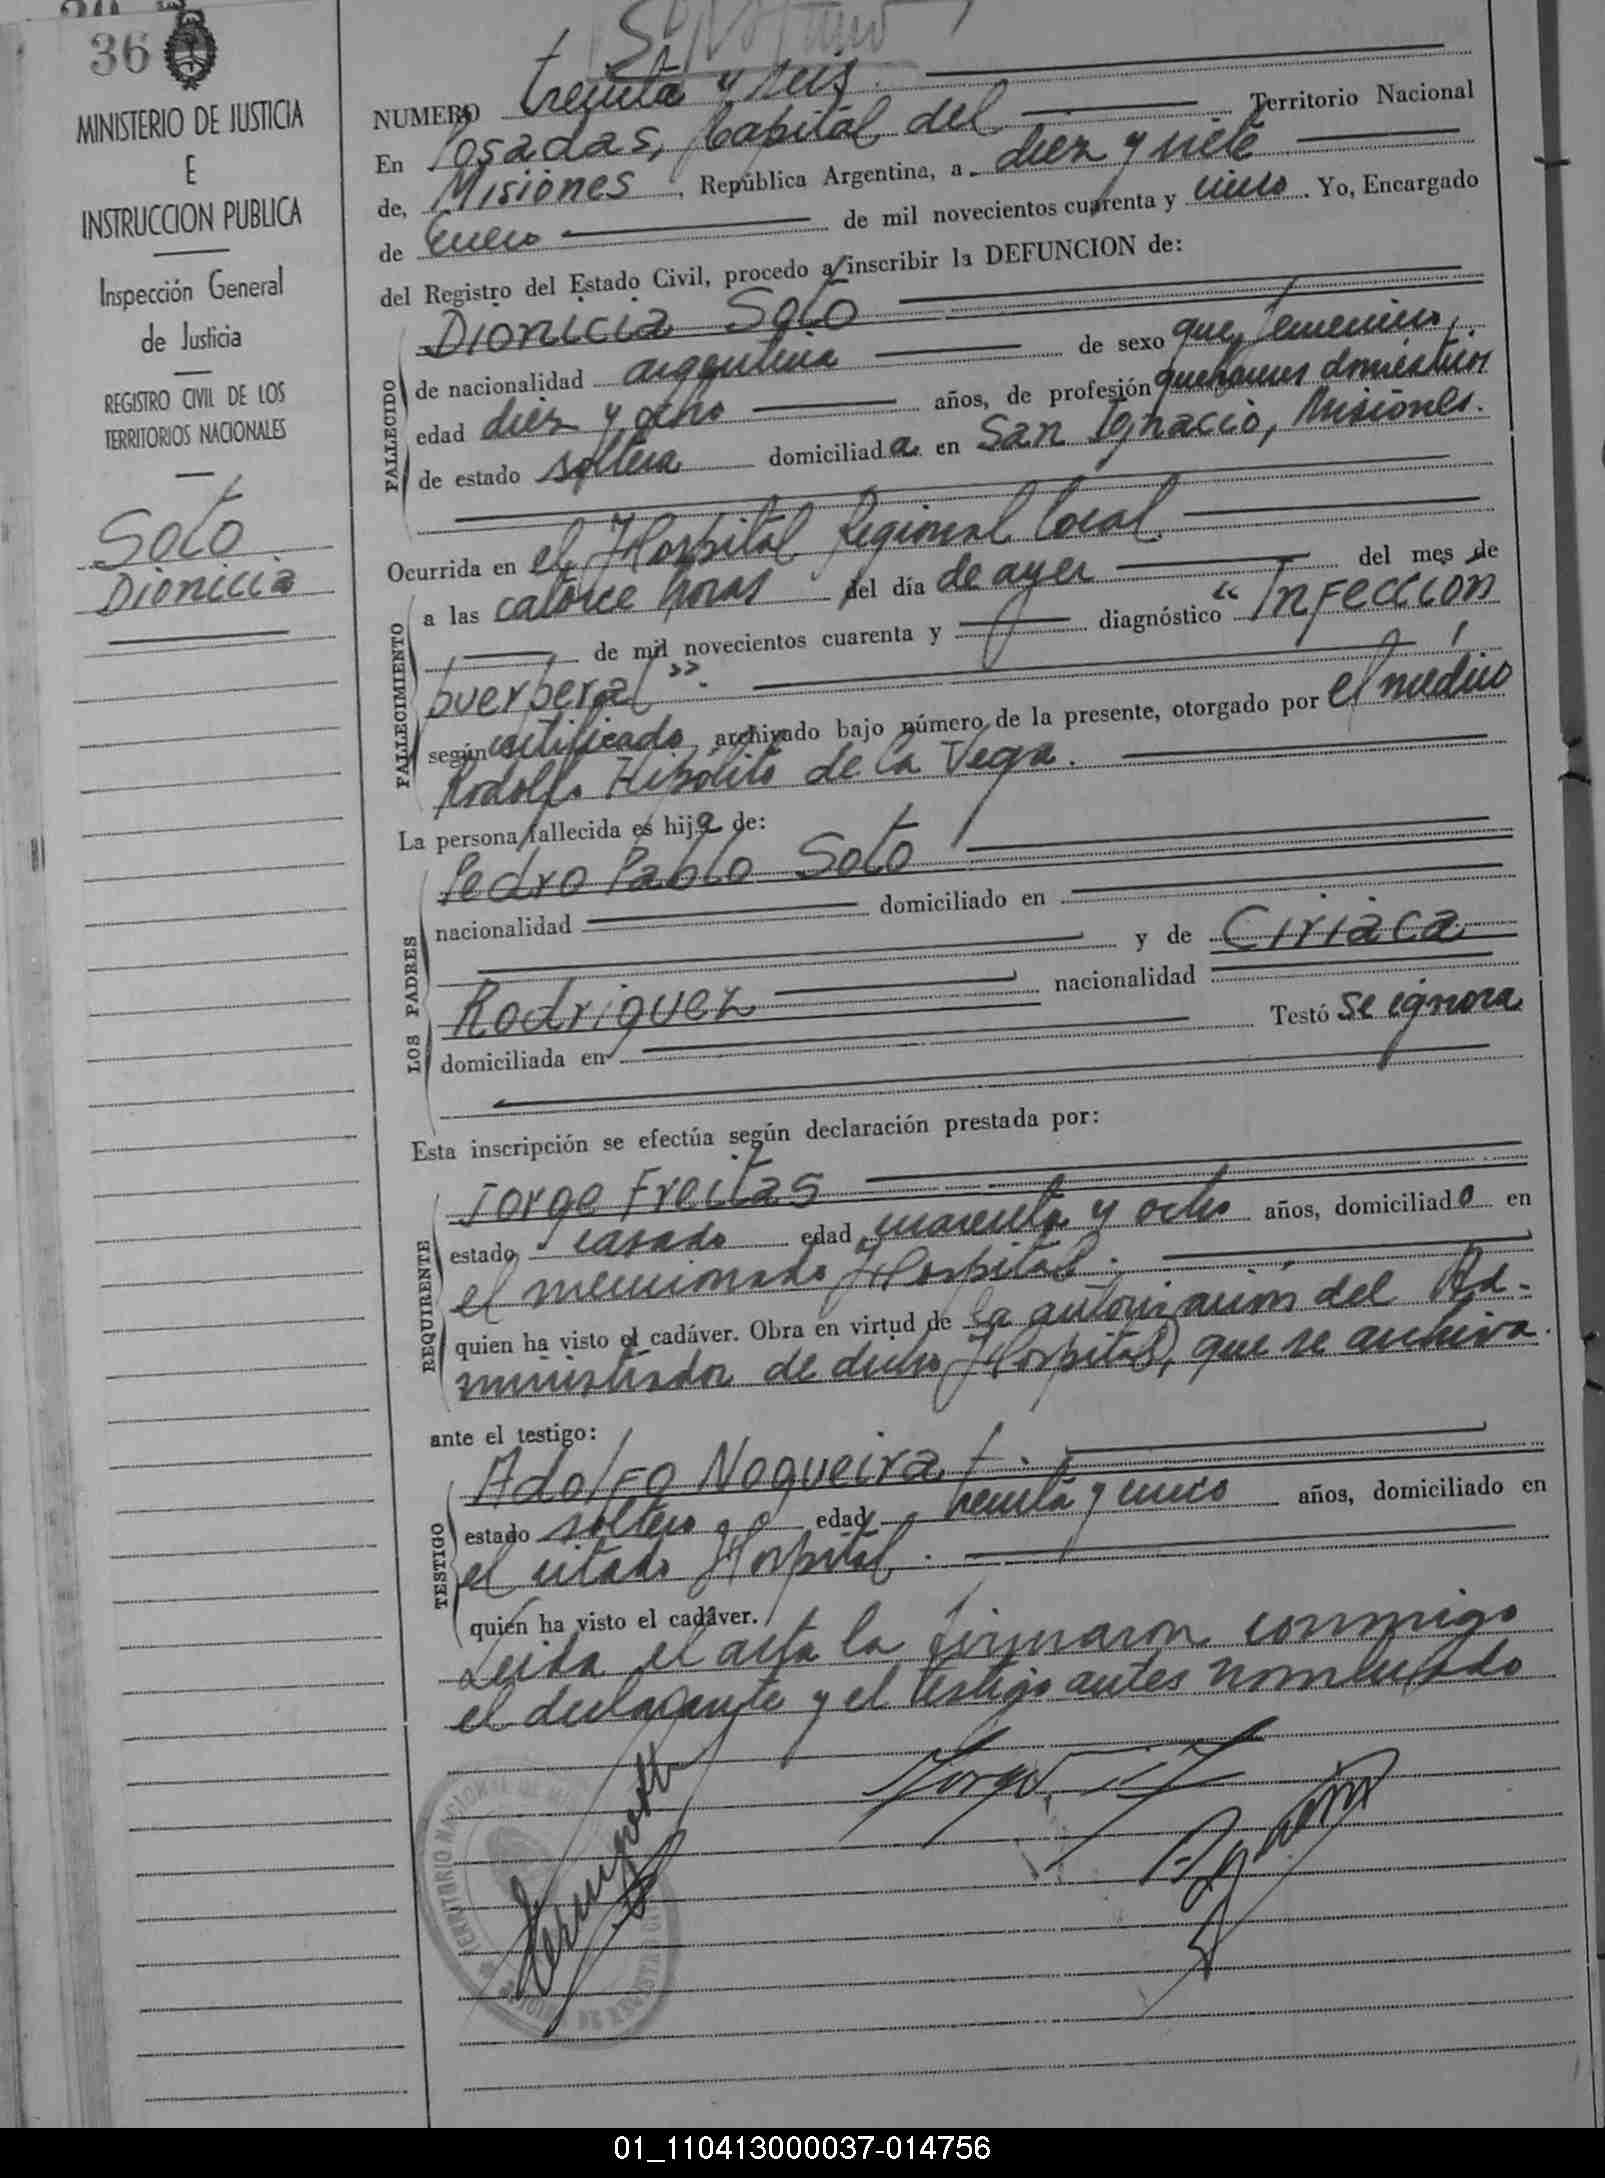 36
MINISTERIO DE JUSTICIA
E
INSTRUCCION PUBLICA
Inspección General
de Justicia
REGISTRO CIVIL DE LOS
TERRITORIOS NACIONALES
Soto
Dionicia
NUMERO treinta y seis.
En Posadas, Capital del Territorio Nacional
de, Misiones, República Argentina, a diez y siete
de Enero de mil novecientos cuarenta y cinco. Yo, Encargado
del Registro del Estado Civil, procedo a inscribir la DEFUNCION de:
FALLECIDO
Dionicia Soto
de nacionalidad argentina de sexo que femenino,
edad diez y ocho años, de profesión quehaceres domésticos
de estado soltera domiciliada en San Ignacio, Misiones.
Ocurrida en el Hospital Regional local
FALLECIMIENTO
a las catorce horas del día de ayer del mes de
de mil novecientos cuarenta y diagnóstico "Infección
puerperal".
según certificado archivado bajo número de la presente, otorgado por el médico
Rodolfo Hipólito de la Vega.
La persona fallecida es hija de:
LOS PADRES
Pedro Pablo Soto
nacionalidad domiciliado en
y de Ciriaca
Rodriguez nacionalidad
domiciliada en Testó se ignora
Esta inscripción se efectúa según declaración prestada por:
REQUIRENTE
Jorge Freitas
estado casado edad cuarenta y ocho años, domiciliado en
el mencionado Hospital.
quien ha visto el cadáver. Obra en virtud de la autorización del Ad-
ministrador de dicho Hospital, que se archiva.
ante el testigo:
TESTIGO
Adolfo Nogueira
estado soltero edad treinta y cinco años, domiciliado en
el citado Hospital.
quien ha visto el cadáver.
Leida el acta la firmaron conmigo
el declarante y el testigo antes nombrado
TERRITORIO NACIONAL DE
DE REGISTRO
01_110413000037-014756